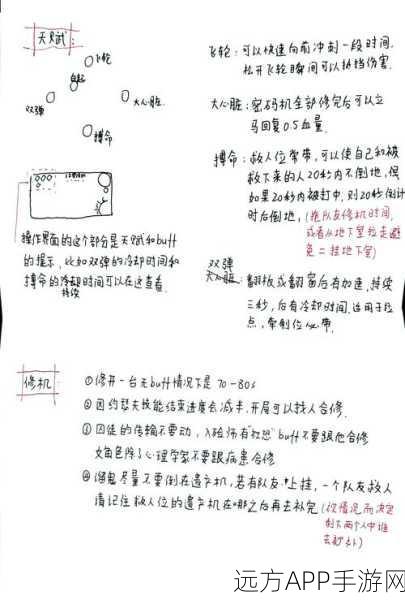 天赋:
飞轮
自起
双弹
大心脏
搏命
操作界面的这个部分是天赋和buff
的提示,比如双弹的冷却时间和
搏命的持续时间可以在这查看
飞轮:可以快速向前冲刺一段时间,
松开飞轮瞬间可以抵挡伤害.
大心脏:密码机全部修完后可以立
马回复0.5血量.
搏命:救人位常带,可以使自己和被
救下来的人20秒内不倒地,但
如果20秒内被打中,则20秒倒计
时后倒地,(拖队友修机时间,
或者从地下室拉走避
免二挂地下室)
双弹
大心脏:翻板或翻窗后有加速,持续
三秒,后有冷却时间.适用于拉
点,牵制位必带.
修机:
①修开一台无buff情况下是70-80s
②因约瑟夫技能结束进度会减半,开局可以找人合修.
③囚徒的传输不要动,入殓师有"社恐"buff不要跟他合修
女角色除了心理学家不要跟病患合修
④溜鬼尽量不要倒在遗产机,若有队友上挂,一个队友救人
请记住救人位的遗产机在哪之后再去补完(视情况而决定
剩下两个人中谁
去补)
远方APP手游网